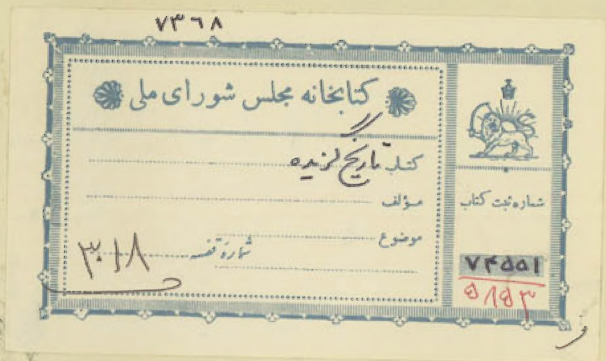 ۷۳۶۸
کتابخانه مجلس شورای ملی
کتاب تاریخ گزیده
مؤلف
موضوع
شمارهٔ قفسه ۳۰۱۸
شماره ثبت کتاب
۷۴۵۵۱
۵۱۵۳